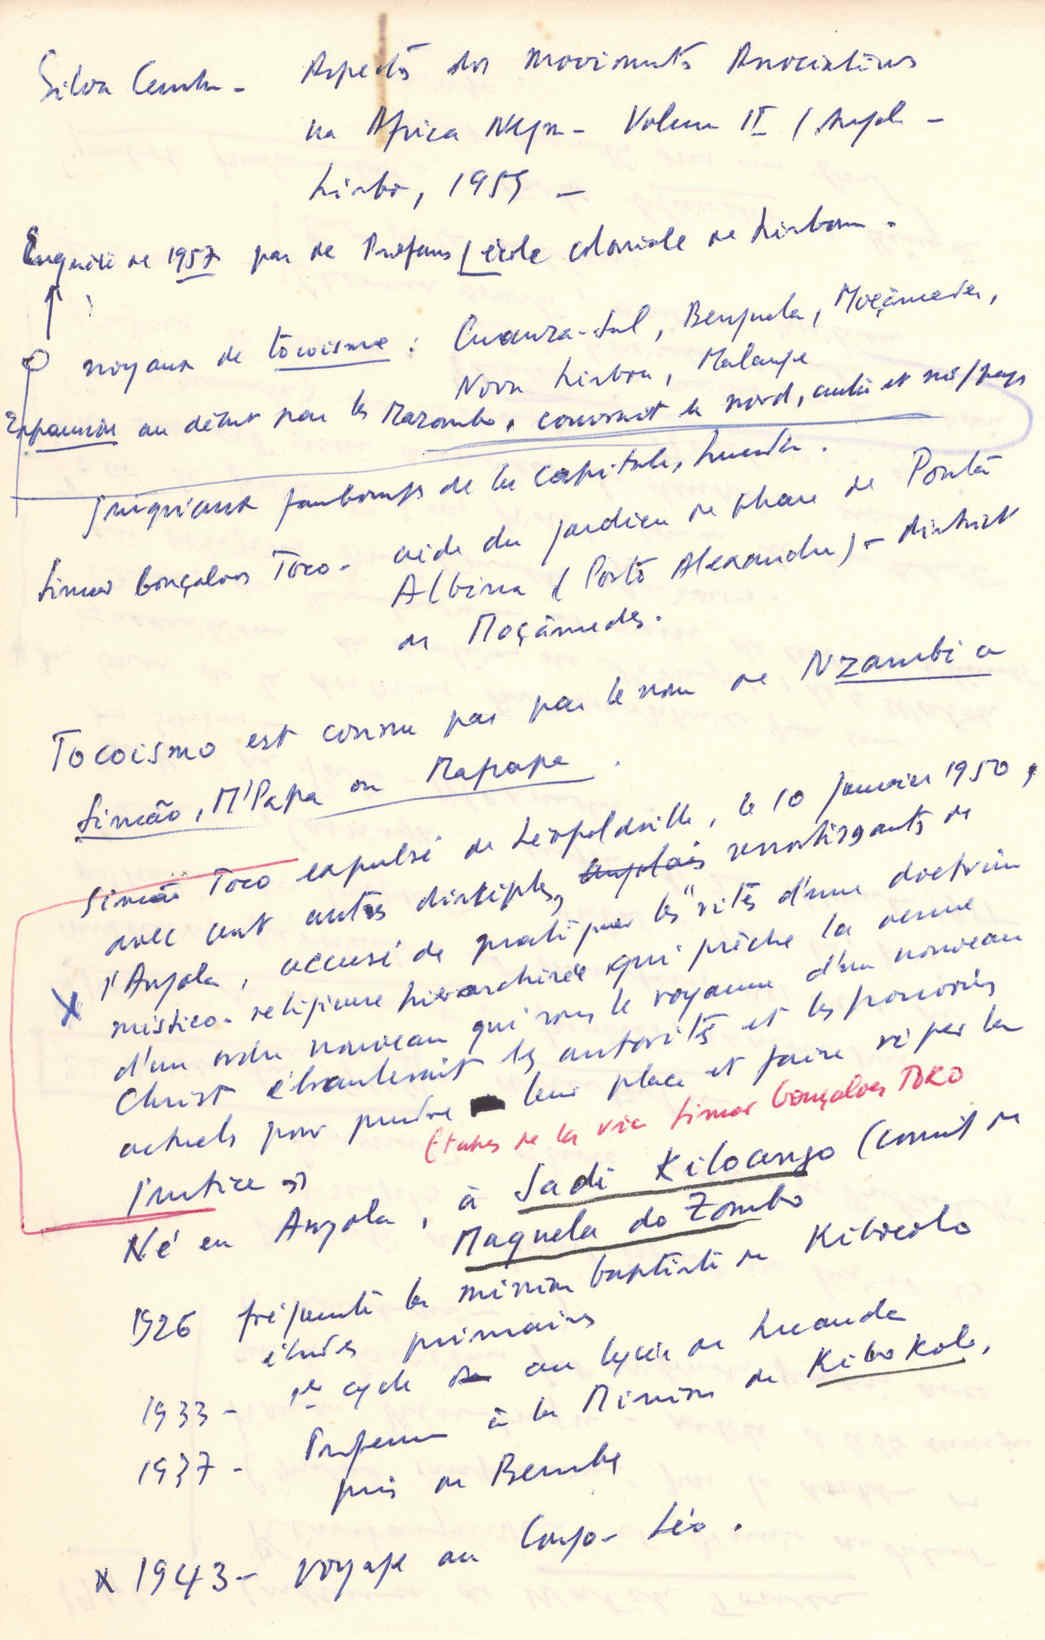 Silva Cunha - Aspectos dos Movimentos Associativos
na Africa Negra - Volume II (Angola -
Lisboa, 1959 -
Enquête de 1957 par de Profess/école coloniale de Lisbonne.
noyaux de tocoisme : Cuanza-Sul, Benguela, Moçâmedes,
Nova Lisboa, Malange
Expansion au début par les Mazombo, couvrait le nord,
faubourgs de la capitale, Luanda.
Simao Gonçalves Toco - aide du gardien de phare de Ponta
Albina (Porto Alexandre) - district
de Moçâmedes.
Tocoismo est connu par par le nom de Nzambi a
Simão, M'Papa ou Mapapa.
Simão Toco expulsé de Léopoldville, le 10 Janvier 1950,
avec cent autres disciples, Angolais ressortissants de
l'Angola, accusé de pratiquer les "rites d'une doctrine
mistico-religieuse hierarchisée qui prêche la venue
d'un ordre nouveau qui sous le royaume d'un nouveau
Christ ébranlerait les autorités et les pouvoirs
actuels pour prendre leur place et faire régner la
Justice »
Etapes de la vie Simao Gonçalves TOCO
Né en Angola, à Sadi Kiloango (Comit de
Maquela do Zombo
1926 fréquente la mission baptiste de Kibocolo
études primaires
1933 - 1er cycle au lycée de Luanda
1937 - Professeur à la Mission de Kibokolo,
puis de Bembe
x 1943 - voyage au Congo-Léo.